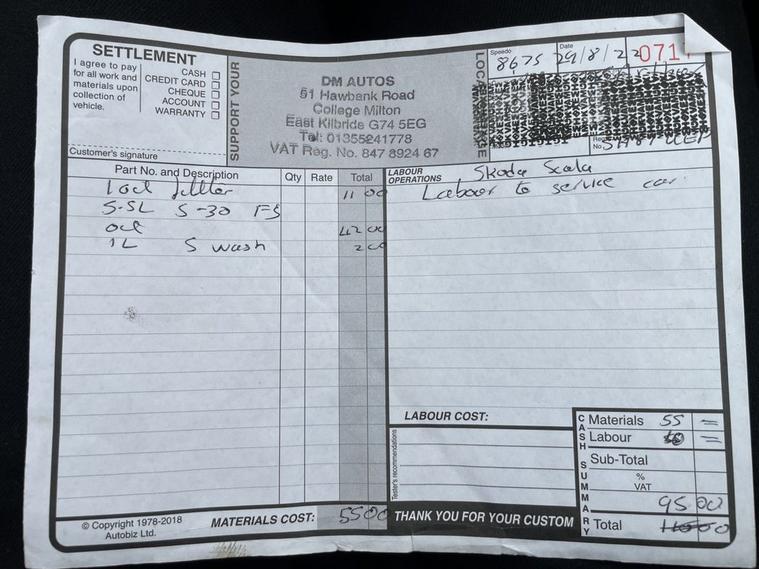 SETTLEMENT
I agree to pay
for all work and
materials upon
collection of
vehicle.
CASH
CREDIT CARD
CHEQUE
ACCOUNT
WARRANTY
Customer's signature
SUPPORT YOUR
DM AUTOS
51 Hawbank Road
College Milton
East Kilbride G74 5EG
Tel: 01355241778
VAT Reg. No. 847 8924 67
Speedo
8675
Date
29/8/22
071
Reg
No
Part No. and Description Qty Rate Total
1 oil filter 11 00
5.5L 5-30 FS
oil 42 00
1L S wash 2 00
MATERIALS COST: 55 00
© Copyright 1978-2018
Autobiz Ltd.
LABOUR
OPERATIONS
Skoda Scala
Labour to service car.
LABOUR COST:
Tester's recommendations
THANK YOU FOR YOUR CUSTOM
CASH SUMMARY
Materials 55 =
Labour =
Sub-Total
%
VAT
95.00
Total